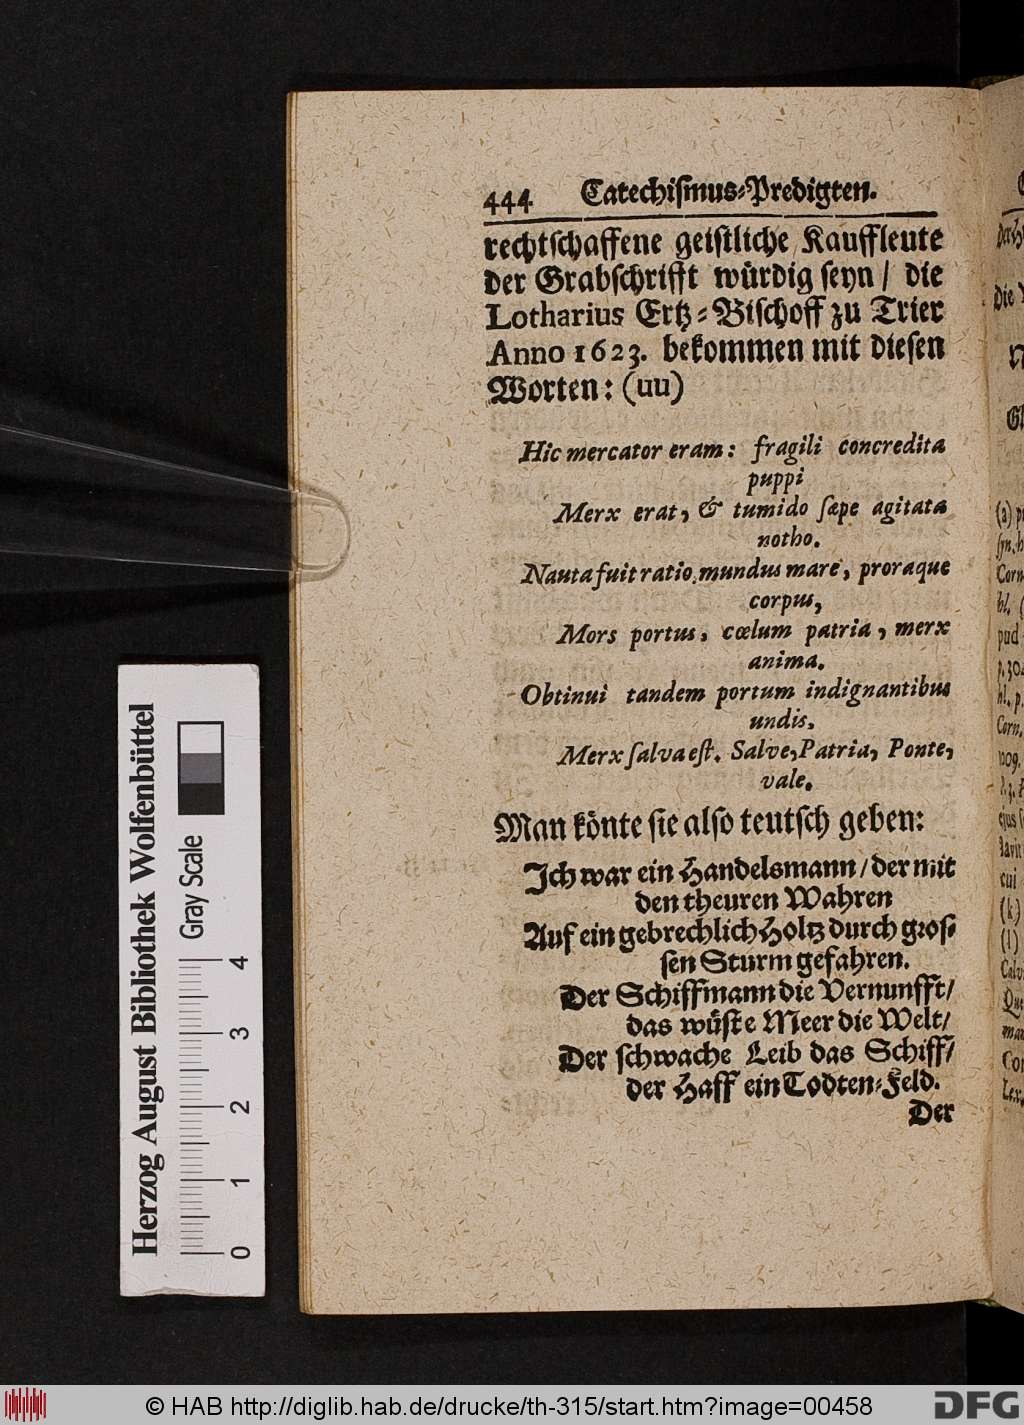 444 Catechiſmus-Predigten.
rechtſchaffene geiſtliche Kauffleute
der Grabſchrifft würdig ſeyn / die
Lotharius Ertz-Biſchoff zu Trier
Anno 1623. bekommen mit dieſen
Worten: (uu)
Hic mercator eram: fragili concredita
puppi
Merx erat, & tumido ſæpe agitata
notho.
Nauta fuit ratio, mundus mare, proraque
corpus,
Mors portus, cœlum patria, merx
anima.
Obtinui tandem portum indignantibus
undis,
Merx ſalva eſt. Salve, Patria, Ponte,
vale.
Man könte ſie alſo teutſch geben:
Ich war ein Handelsmann / der mit
den theuren Wahren
Auf ein gebrechlich Holtz durch groſ-
ſen Sturm gefahren.
Der Schiffmann die Vernunfft /
das wüſte Meer die Welt /
Der ſchwache Leib das Schiff /
der Haff ein Todten-Feld.
Der
Herzog August Bibliothek Wolfenbüttel
Gray Scale
0 1 2 3 4
© HAB http://diglib.hab.de/drucke/th-315/start.htm?image=00458
DFG